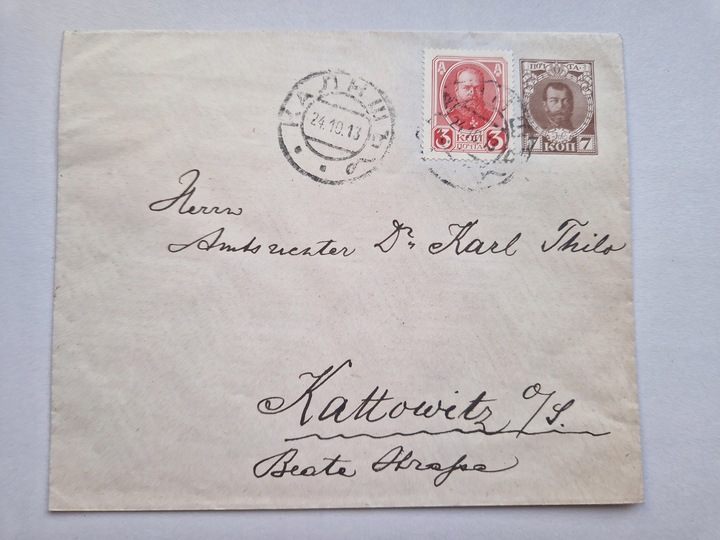 КАЛИШЪ
24.10.13
3 КОП 3
ПОЧТА
ПОЧТА
7 КОП 7
Herrn
Amtsrichter Dr. Karl Thilo
Kattowitz O/S.
Beate Strasse